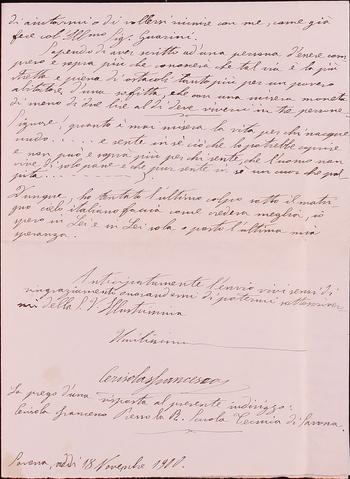 di ajutarmi o di volersi riunire con me, come già
fece col Ill.mo Sig. Guarini.
Sapendo di aver scritto ad una persona d'onore, com
e sopra più che conoscerà che tal via è la più
stretta e piena di ostacoli tanto più per un povero
abitatore d'una soffitta, che con una misera moneta
di meno di due lire al dì deve viverci in tre persone.
Signore! quanto è mai misera la vita per chi nacque
nudo..... e sente in sè ciò che lo potrebbe coprire
e non può e sopra più per chi sente, che l'uomo non
vive di solo pane e che pur sente in sè un cuor che pal
pita....
Dunque, ho tentato l'ultimo colpo sotto il
cielo italiano faccia come crederà meglio, io
spero in Lei e in Lei sola o posto l'ultima mia
speranza.
Anticipatamente l'invio vivi sensi di
ringraziamento onorandomi di potermi sottoscriver
mi della S. V. Illustrissima
Umilissimo
Cerisola Francesco
La prego d'una risposta al presente indirizzo:
Cerisola Francesco Presso la R. Scuola Tecnica di Savona.
Savona, addì 18 Novembre 1910.